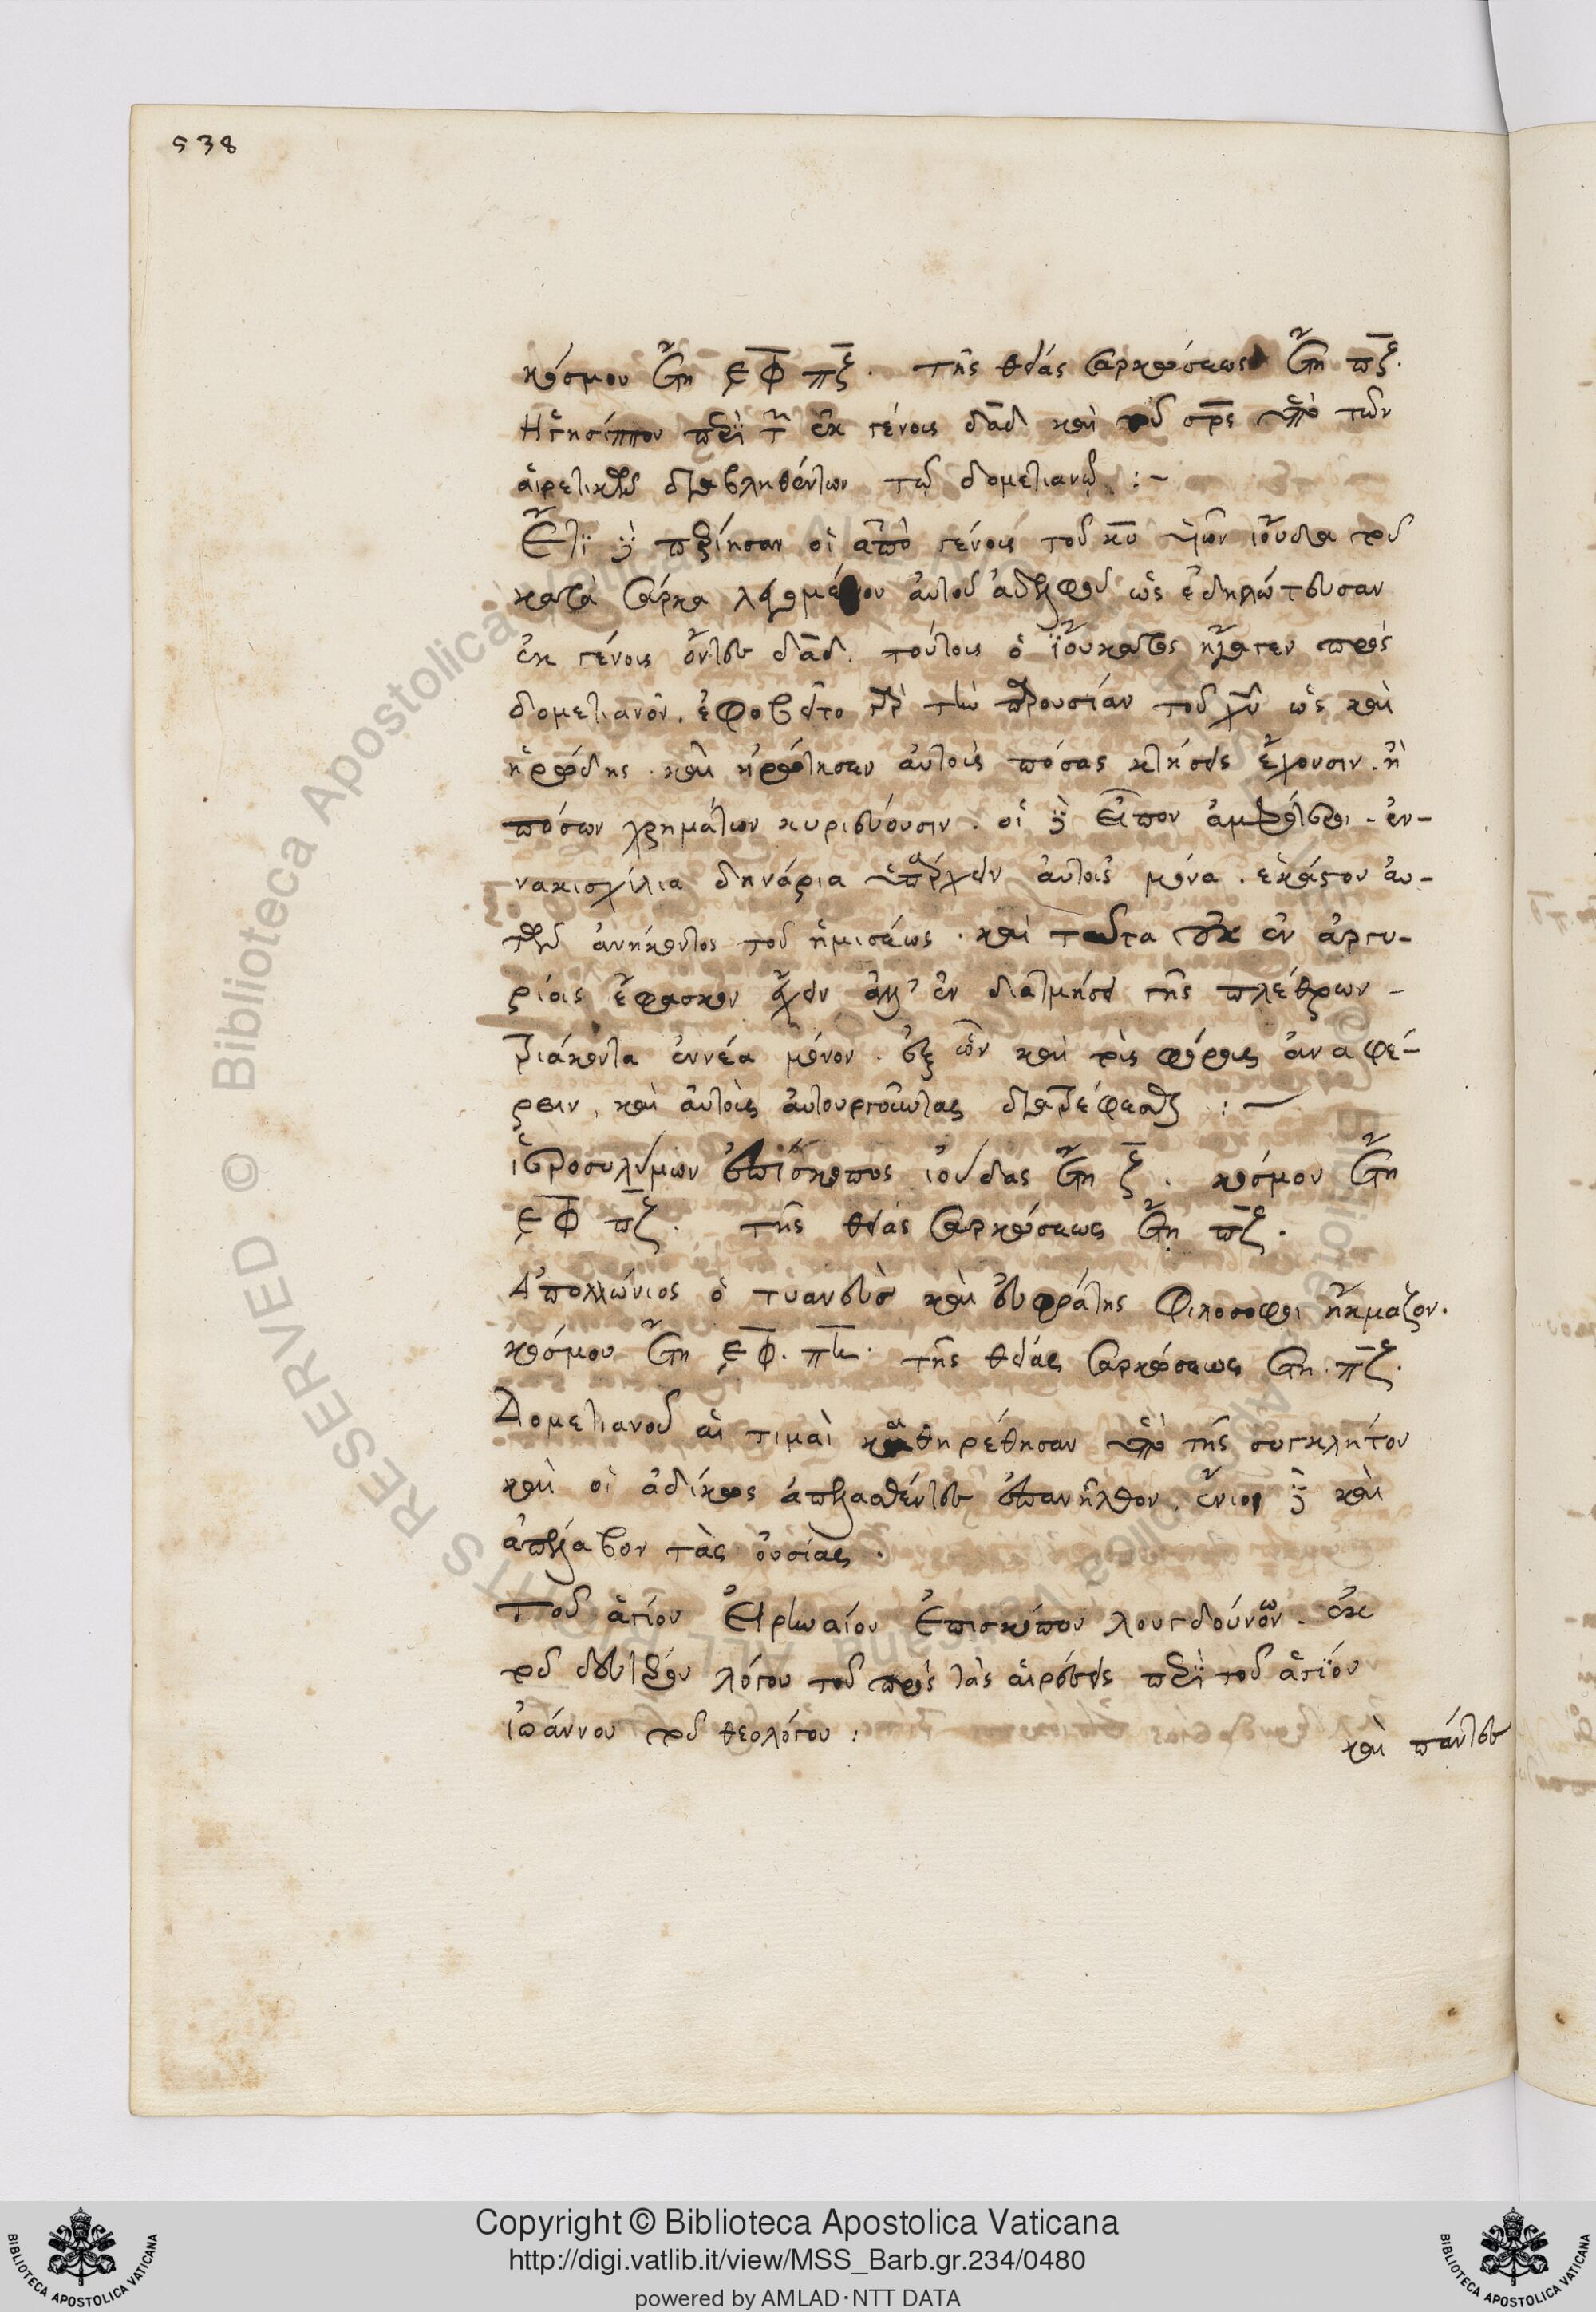 538
κόσμου ἔτη ͵εφπζ. τῆς θείας σαρκώσεως ἔτη πζ.
Ἡγησίππου περὶ τῶν ἐκ γένους δαδ καὶ τοῦ σρς ὑπὸ τῶν
αἱρετικῶν διαβληθέντων τῷ δομετιανῷ :~
Ἔτι δὲ περιήσαν οἱ ἀπὸ γένους τοῦ κυ ἡμῶν ἰούδα τοῦ
κατὰ σάρκα λεγομένου αὐτοῦ ἀδελφοῦ ὡς ἐδηλώτευσαν
ἐκ γένους ὄντες δαδ. τούτοις ὁ ἰούκατος ἤγαγεν πρὸς
δομετιανόν. ἐφοβεῖτο γὰρ τὴν παρουσίαν τοῦ χυ ὡς καὶ
ἡρώδης. καὶ ἠρώτησεν αὐτοὺς πόσας κτήσεις ἔχουσιν. ἢ
πόσων χρημάτων κυριεύουσιν. οἱ δὲ εἶπον ἀμφότεροι. ἐν-
νακισχίλια δηνάρια ὑπάρχειν αὐτοῖς μόνα. ἑκάστου αὐ-
τῶν ἀνήκοντος τοῦ ἡμισέως. καὶ ταῦτα οὐκ ἐν ἀργυ-
ρίοις ἔφασκον ἔχειν ἀλλ' ἐν διατιμήσει γῆς πλέθρων-
τριάκοντα ἐννέα μόνον. ἐξ ὧν καὶ τοὺς φόρους ἀναφέ-
ρειν. καὶ αὐτοὺς αὐτουργοῦντας διατρέφεσθαι :~
ἱεροσολύμων ἐπίσκοπος ἰούδας ἔτη ζ. κόσμου ἔτη
͵εφπζ. τῆς θείας σαρκώσεως ἔτη πζ.
Ἀπολλώνιος ὁ τυανεὺς καὶ εὐφράτης φιλοσοφοι ἤκμαζον.
κόσμου ἔτη ͵εφ.πη. τῆς θείας σαρκώσεως ἔτη. πζ.
Δομετιανοῦ αἱ τιμαὶ καθηρέθησαν ὑπὸ τῆς συγκλήτου
καὶ οἱ ἀδίκως ἀπελαθέντες ἐπανῆλθον. ἔνιοι δὲ καὶ
ἀπέλαβον τὰς οὐσίας.
Τοῦ ἁγίου Εἰρηναίου Ἐπισκόπου λουγδούνων. ἐκ
τοῦ δευτέρου λόγου τοῦ πρὸς τὰς αἱρέσεις περὶ τοῦ ἁγίου
ἰωάννου τοῦ θεολόγου :
καὶ πάντες
Copyright © Biblioteca Apostolica Vaticana
http://digi.vatlib.it/view/MSS_Barb.gr.234/0480
powered by AMLAD·NTT DATA